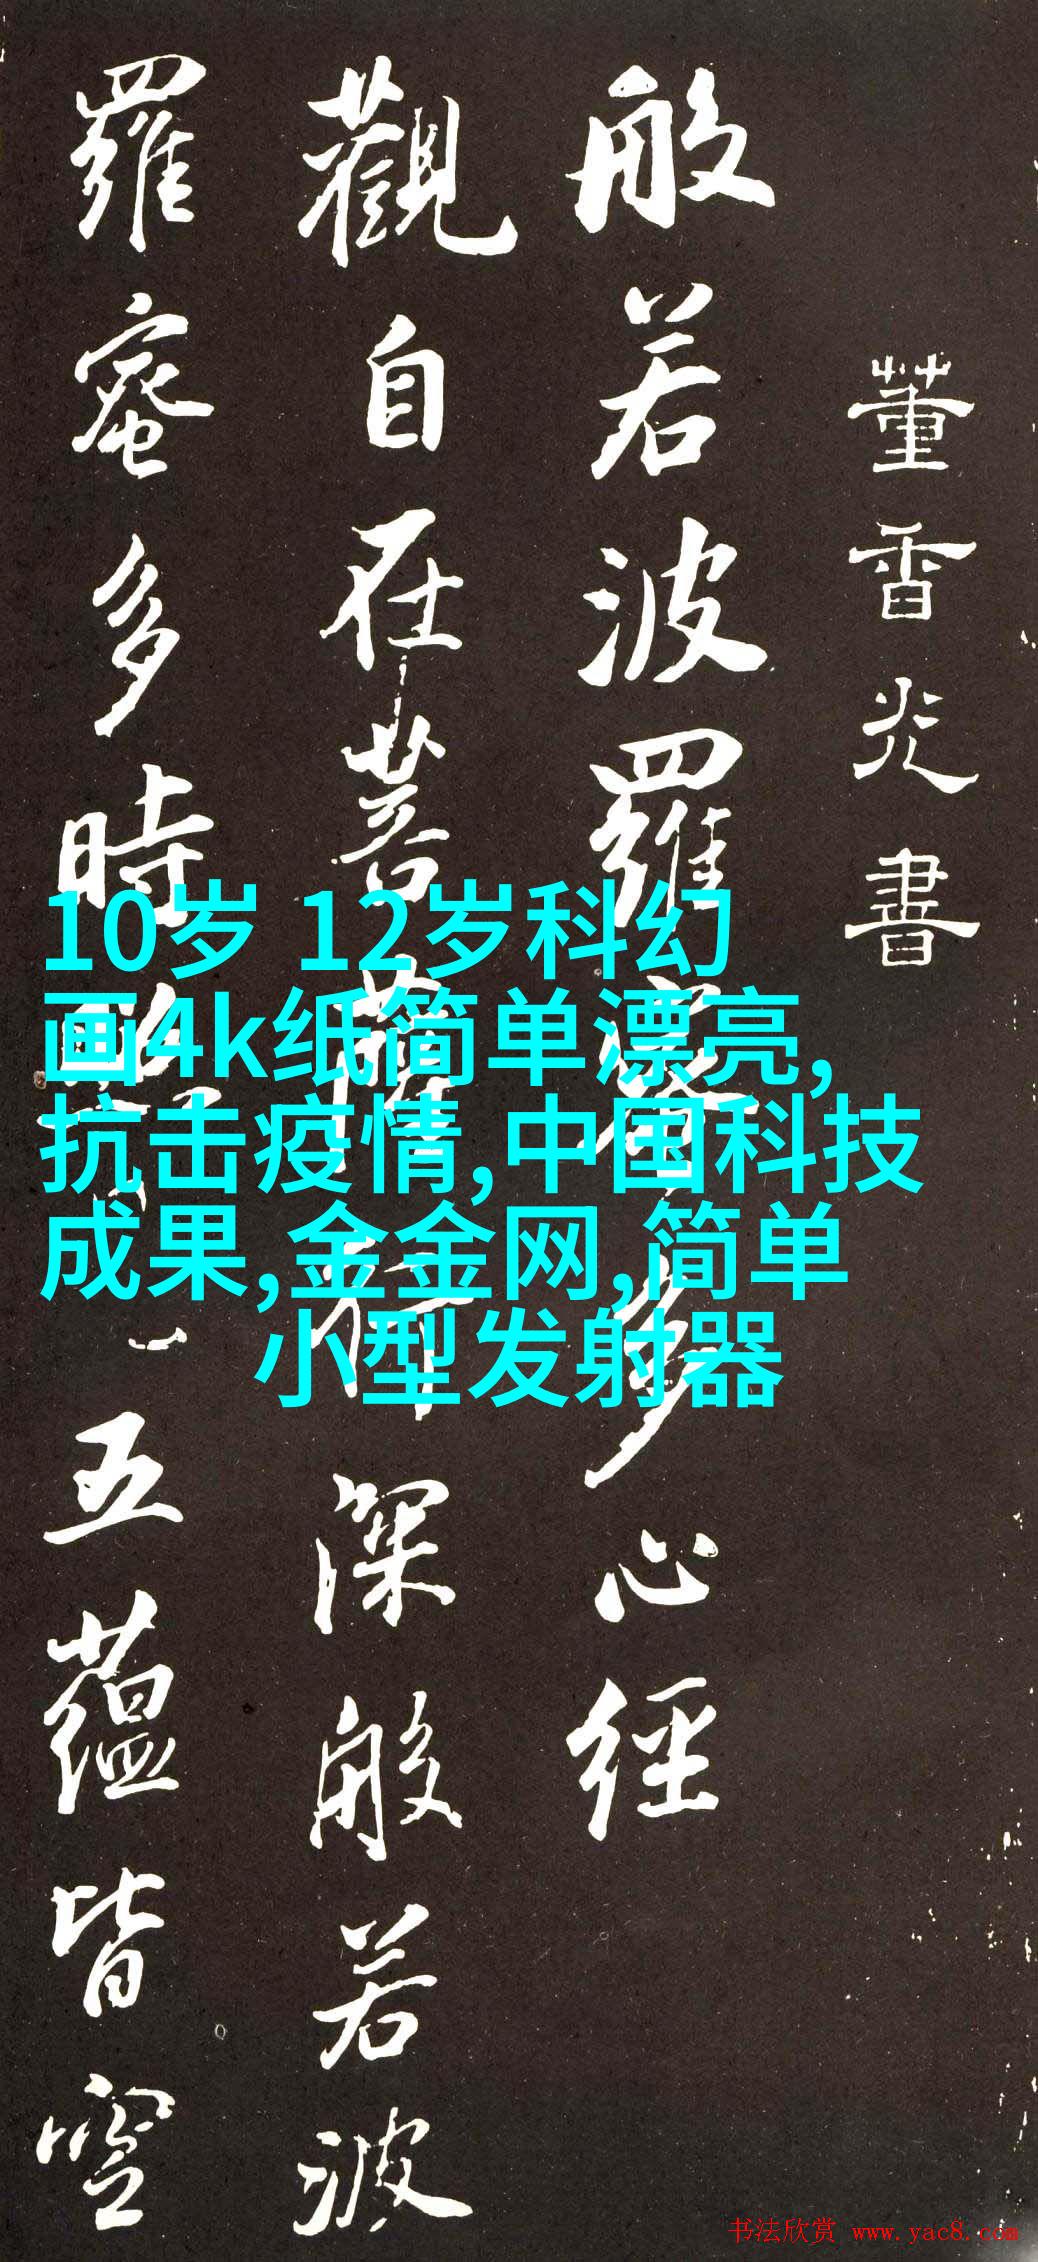 董香光書
般若波羅蜜多心經
觀自在菩薩行深般若波
羅蜜多時照五蘊皆空
10岁 12岁科幻
画4k纸简单漂亮,
抗击疫情,中国科技
成果,金金网,简单
小型发射器
书法欣赏 www.yac8.com